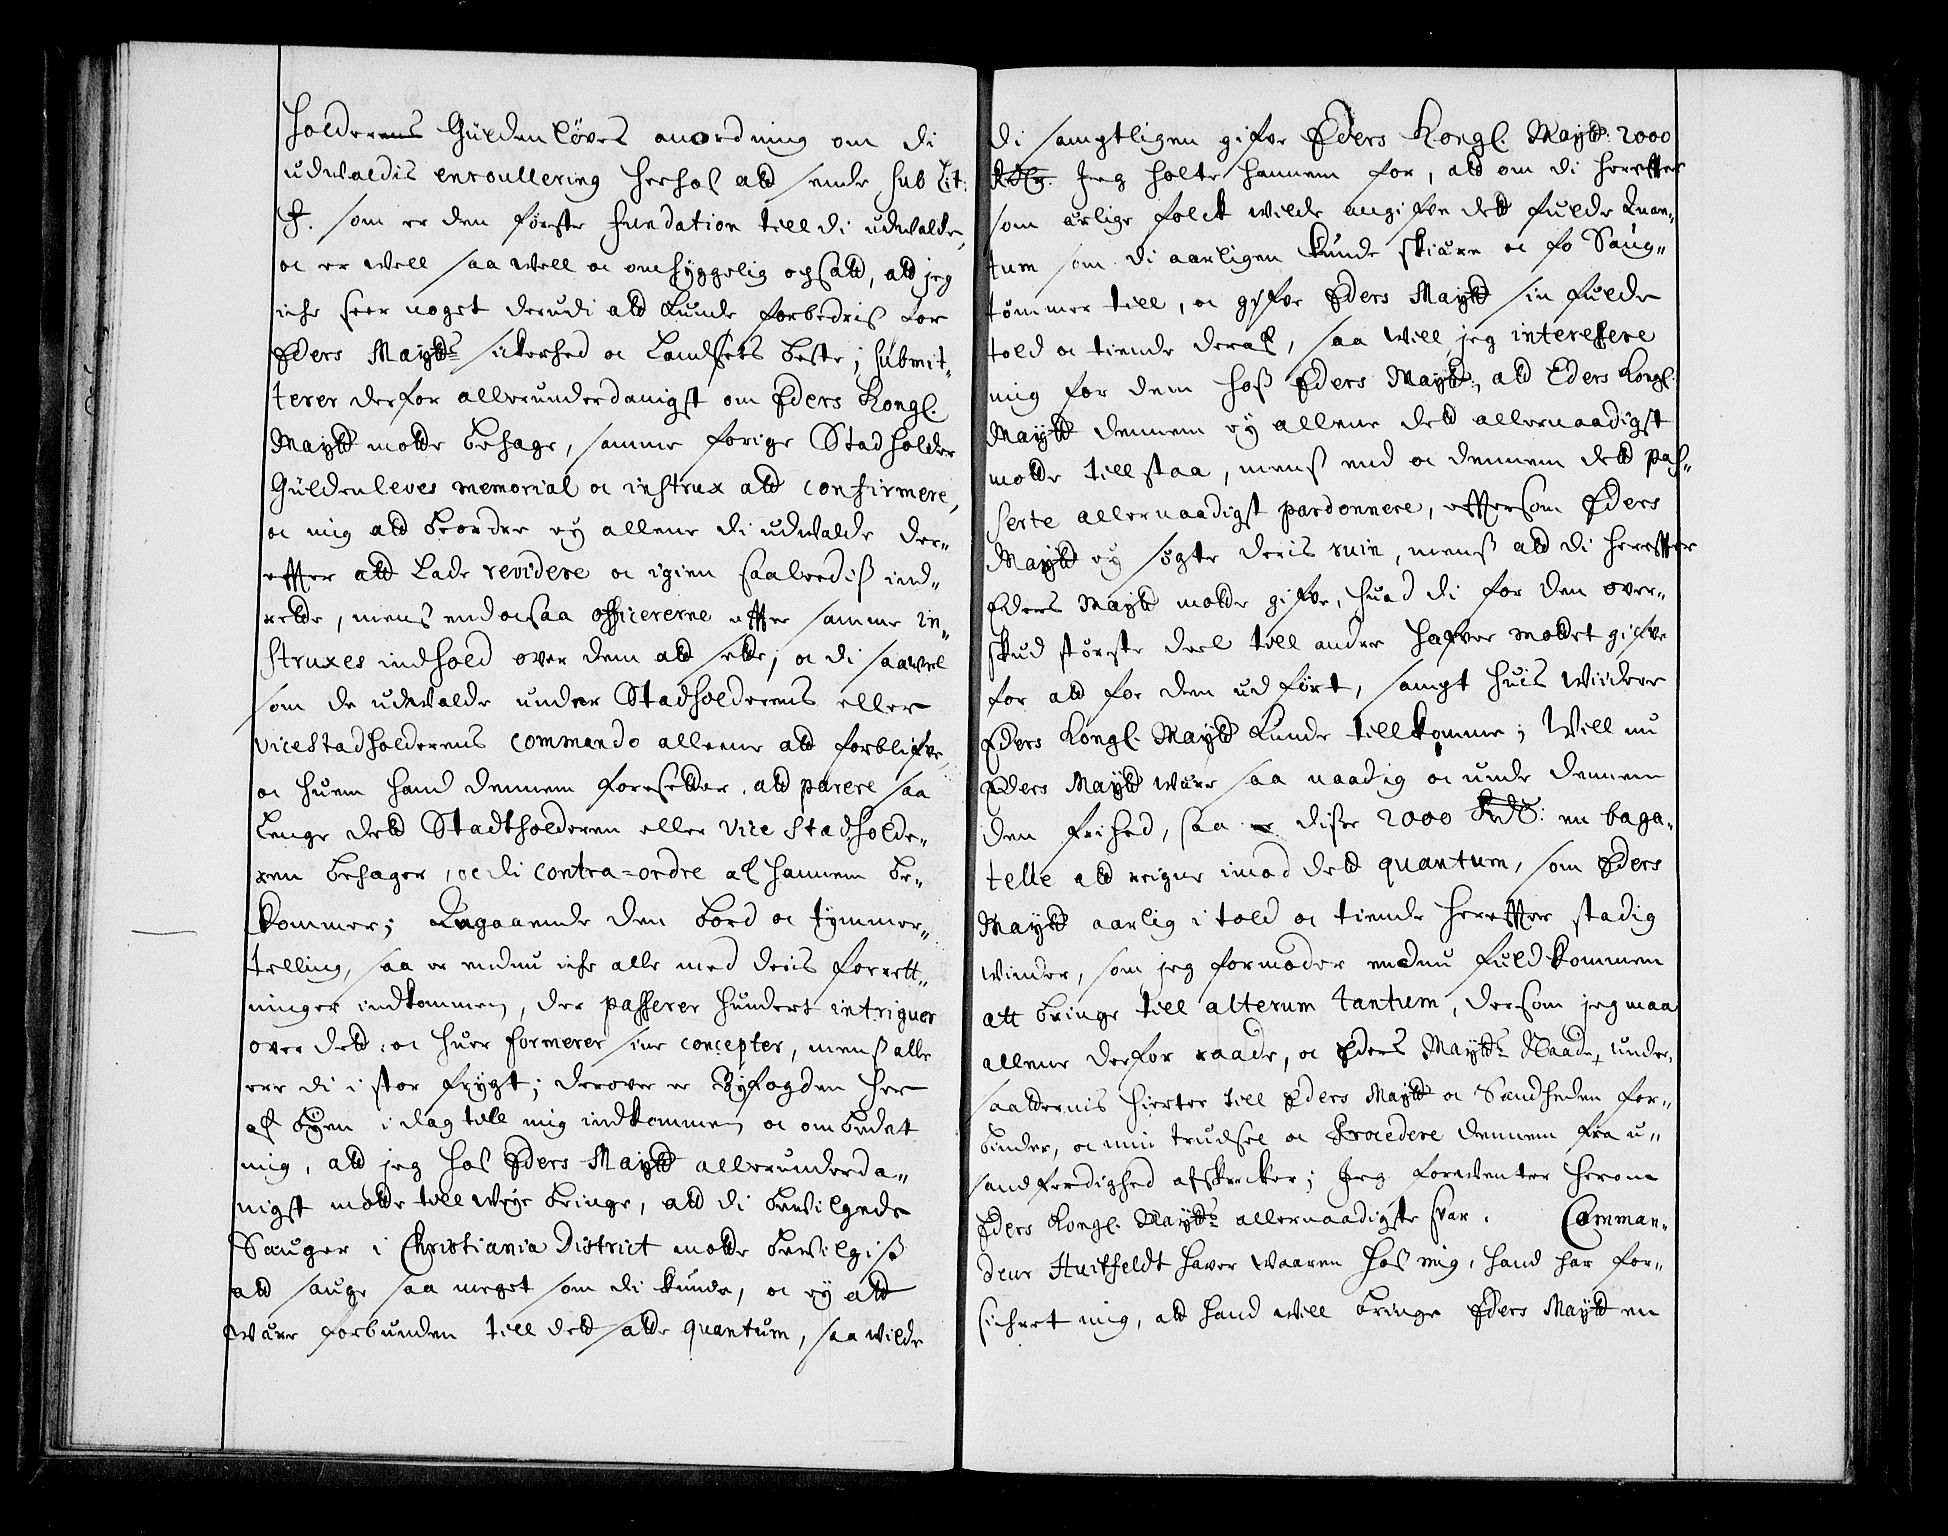 holderens Güldenløves anordning om di
udwaldis enroullering herhos att sende sub Lit:
F. som er den første fundation till di udwalde,
oc er well saa well oc omhyggelig opsatt, att jeg
iche seer noget derudi att kunde forbedris for
Eders Maytts sickerhed oc Landsets beste; submit„
terer derfor allerunderdanigst om Eders Kongl.
Maytt motte behage, samme forige Stadholder
Güldenleves memorial oc instrux att confirmere,
oc mig att beordre ey allene di udwalde der„
effter att lade revidere oc igien saaledis ind„
rette, mens endocsaa officererne effter samme in„
struxes indhold over dem att sette; oc di saavel
som de udwalde under Stadholderens eller
vicestadholderens commando alleene att forblifve,
oc huem hand dennem foresetter, att parere saa
lenge dett Stadtholderen eller Vice Stadholde„
ren behager, oc di contra=ordre af hannem be„
kommer; Angaaende den bord oc tymmer„
telling, saa er endnu iche alle med deris forrett„
ninger indkommen, der passerer hundert intriguer
over dett, oc huer formerer sine concepter, mens alle
ere di i stor frygt; derover er Byfogden her
af byen i dag till mig indkommen oc ombedet
mig, att jeg hos Eders Maytt allerunderda„
nigst motte till weye bringe, att di bewilgede
Sauger i Christiania District motte bewilgis
att sauge saa meget som di kunde, oc ey att
være forbunden till dett satte quantum, saa wilde
di samptligen gifve Eders Kongl. Maytt. 2000
Rdlr. Jeg holte hannem for, att om di hereffter
som ærlige folck wilde angifve dett fulde Quan„
tum som di aarligen kunde skiære oc fo Saug„
tømmer till, oc gifve Eders Maytt sin fulde
told oc tiende deraf, saa will jeg interessere
mig for dem hos Eders Maytt., att Eders Kongl.
Maytt dennem ey allene dett allernaadigst
motte till staa, mens end oc dennem dett pas„
serte allernaadigst pardonnere, effter som Eders
Maytt ey søgte deris ruin, mens att di hereffter
Eders Maytt motte gifve, huad di for den over„
skud største deel till andre hafver mottet gifve
for att for dem udført, sampt huis widere
Eders Kongl. Maytt kunde tillkomme; Will nu
Eders Maytt være saa naadig oc unde dennem
den frihed, saa er disse 2000 Rdr: en baga„
telle att reigne imod dett quantum, som Eders
Maytt aarlig i told oc tiende hereffter stadig
winder, som jeg formoder endnu fuldkommen
att bringe till alterum tantum, dersom jeg maa
allene derfor raade, oc Eders Maytts Naade, under„
saatternis hierter till Eders Maytt oc Sandheden for„
binder, oc min trudsel oc Procedere dennem fra u„
sandferdighed afskrecker; Jeg forwenter herom
Eders Kongl. Maytts allernaadigste svar. Comman„
deur Huitfeldt haver waaren hos mig, hand har for„
sichret mig, att hand will bringe Eders Maytt en